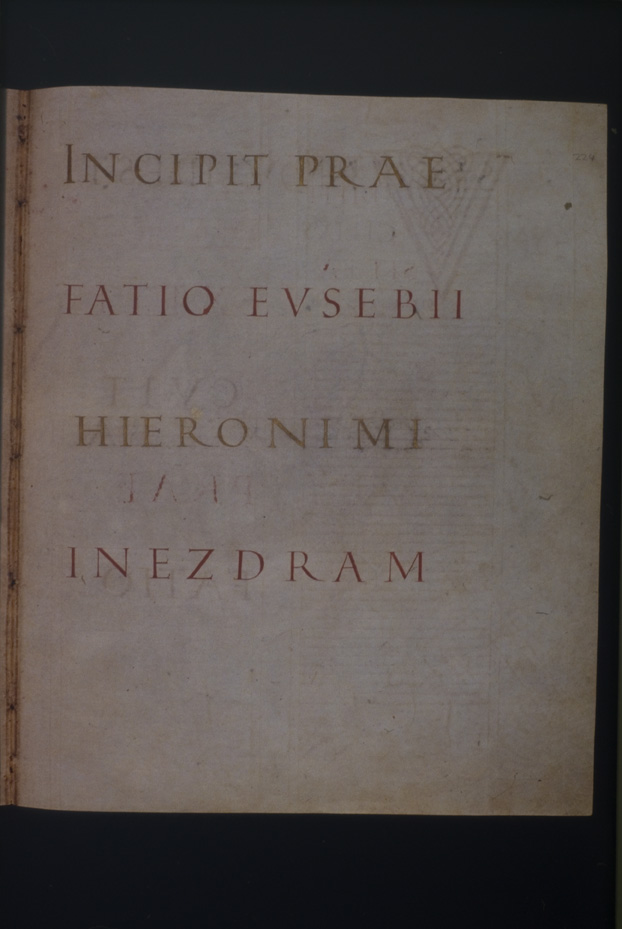 INCIPIT PRAE
FATIO EVSEBII
HIERONIMI
IN EZDRAM